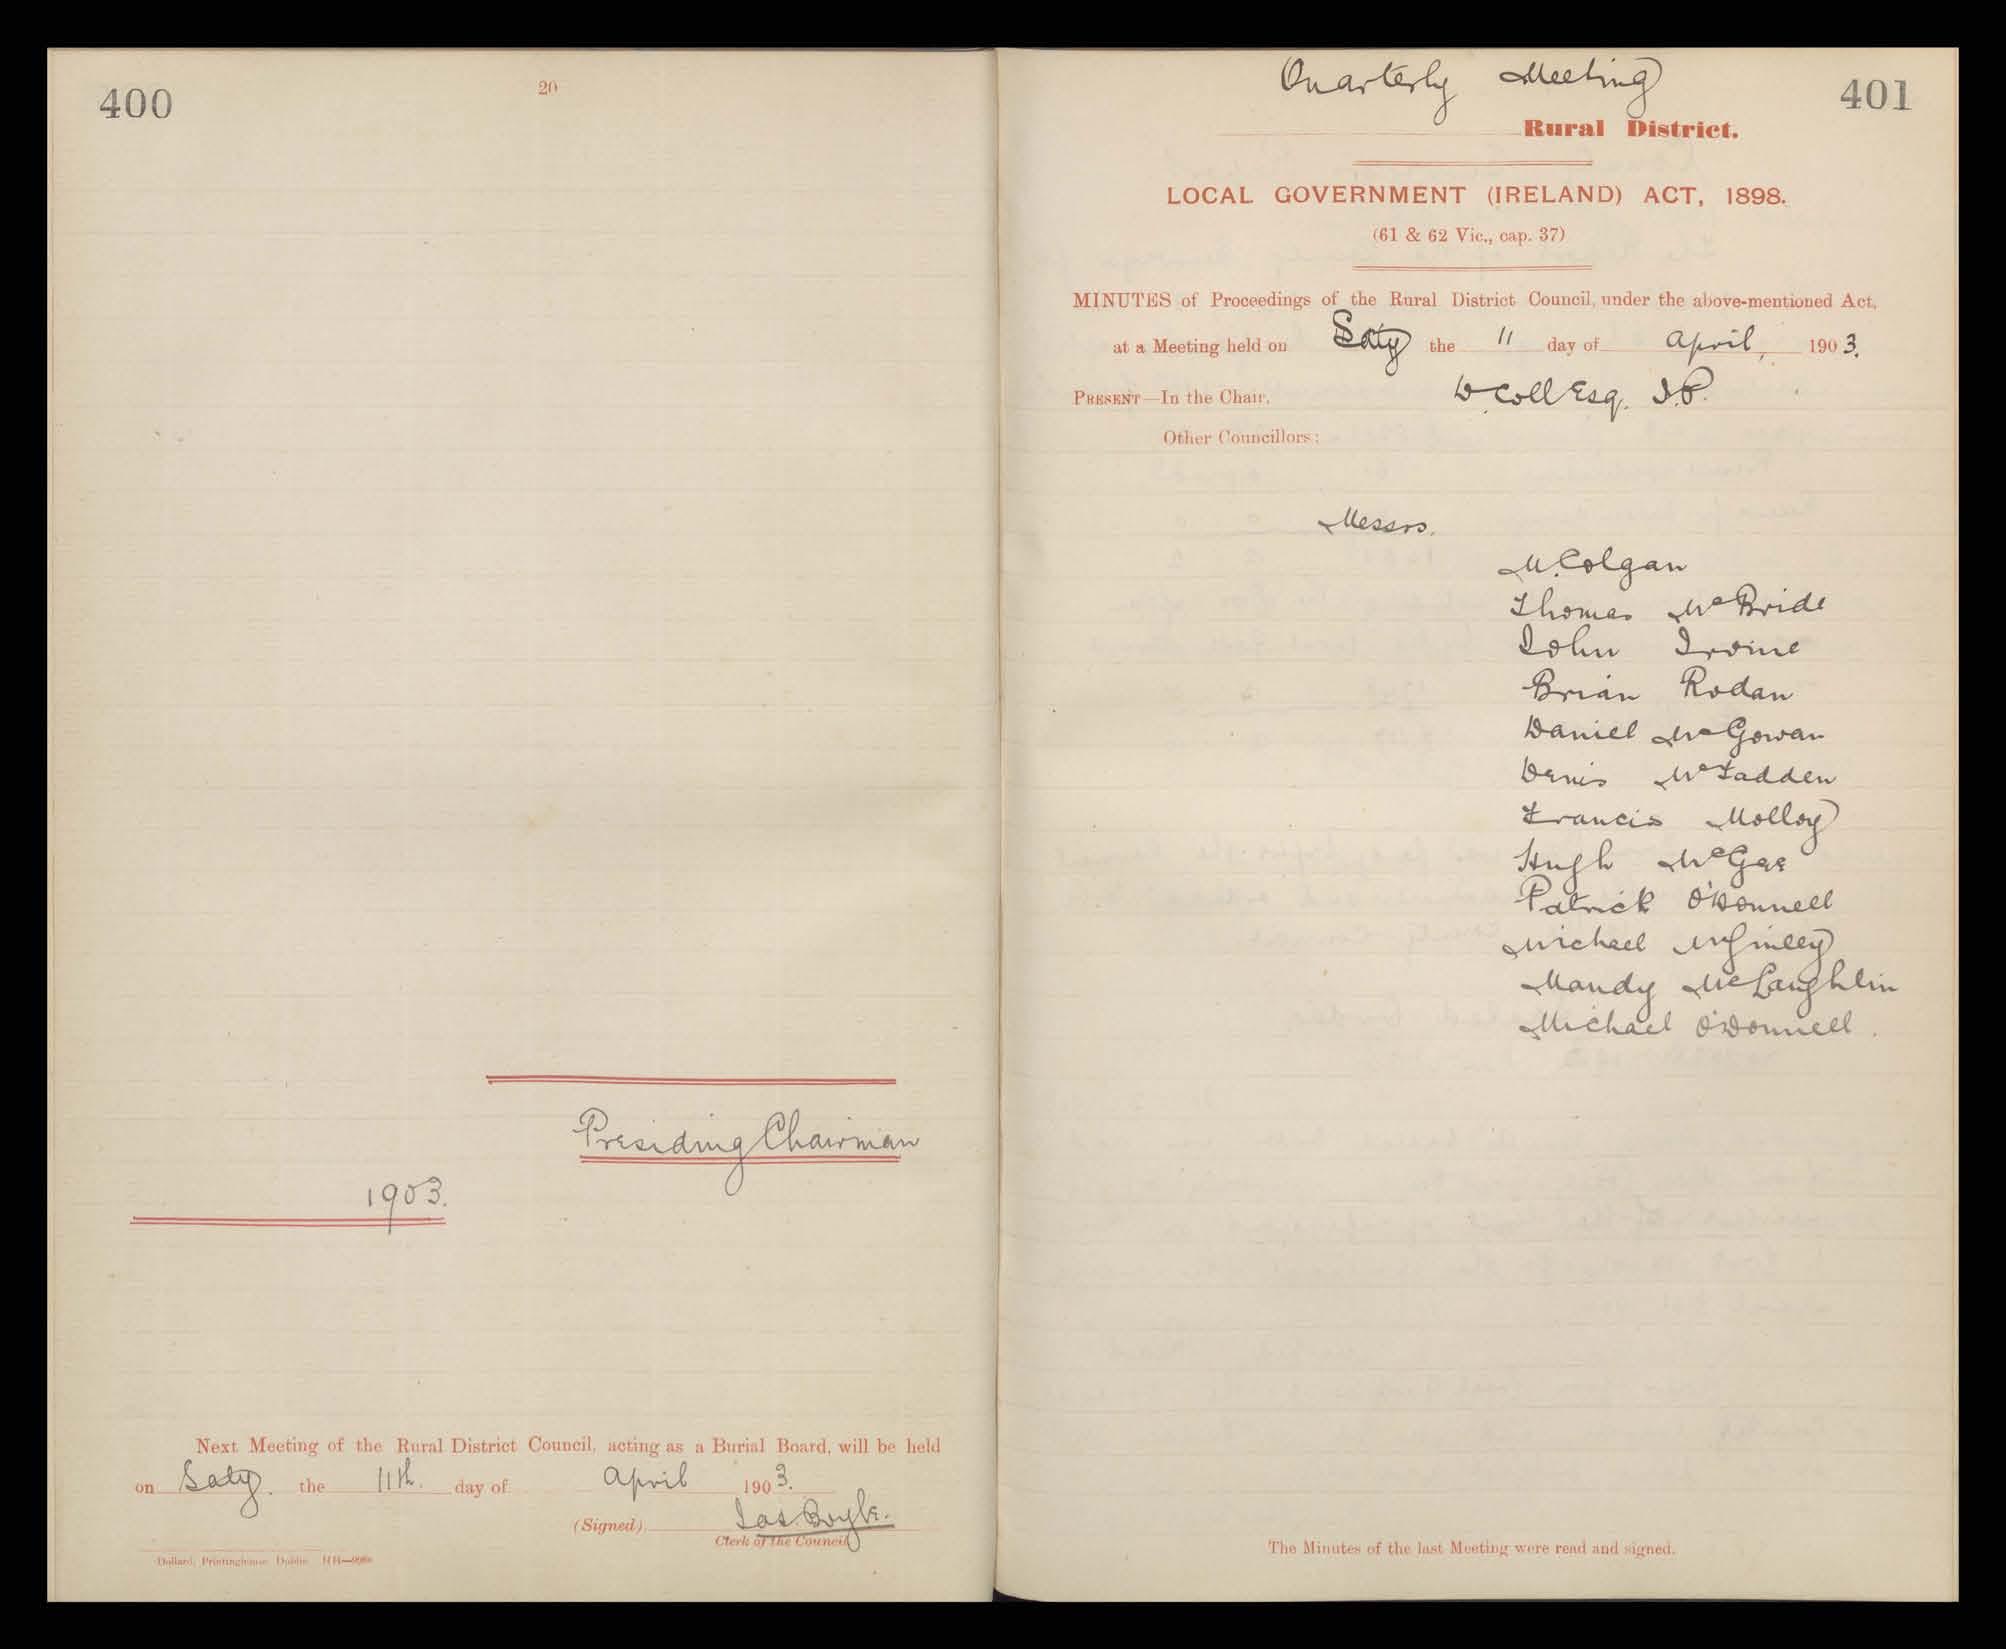 400
20
Presiding Chairman
1903.
Next Meeting of the Rural District Council, acting as a Burial Board, will be held
on Saty. the 11th. day of April 1903.
(Signed) Jas. Boyle.
Clerk of the Council
Dollard, Printinghouse, Dublin
Quarterly Meeting
401
Rural District.
LOCAL GOVERNMENT (IRELAND) ACT, 1898.
(61 & 62 Vic., cap. 37)
MINUTES of Proceedings of the Rural District Council, under the above-mentioned Act,
at a Meeting held on Saty the 11 day of April, 1903.
PRESENT—In the Chair, D. Coll Esq. J.P.
Other Councillors:
Messrs.
M. Colgan
Thomas McBride
John Irvine
Brian Rodan
Daniel McGowan
Denis McFadden
Francis Molloy
Hugh McGee
Patrick O'Donnell
Michael McGinley
Mandy McLaughlin
Michael O'Donnell.
The Minutes of the last Meeting were read and signed.